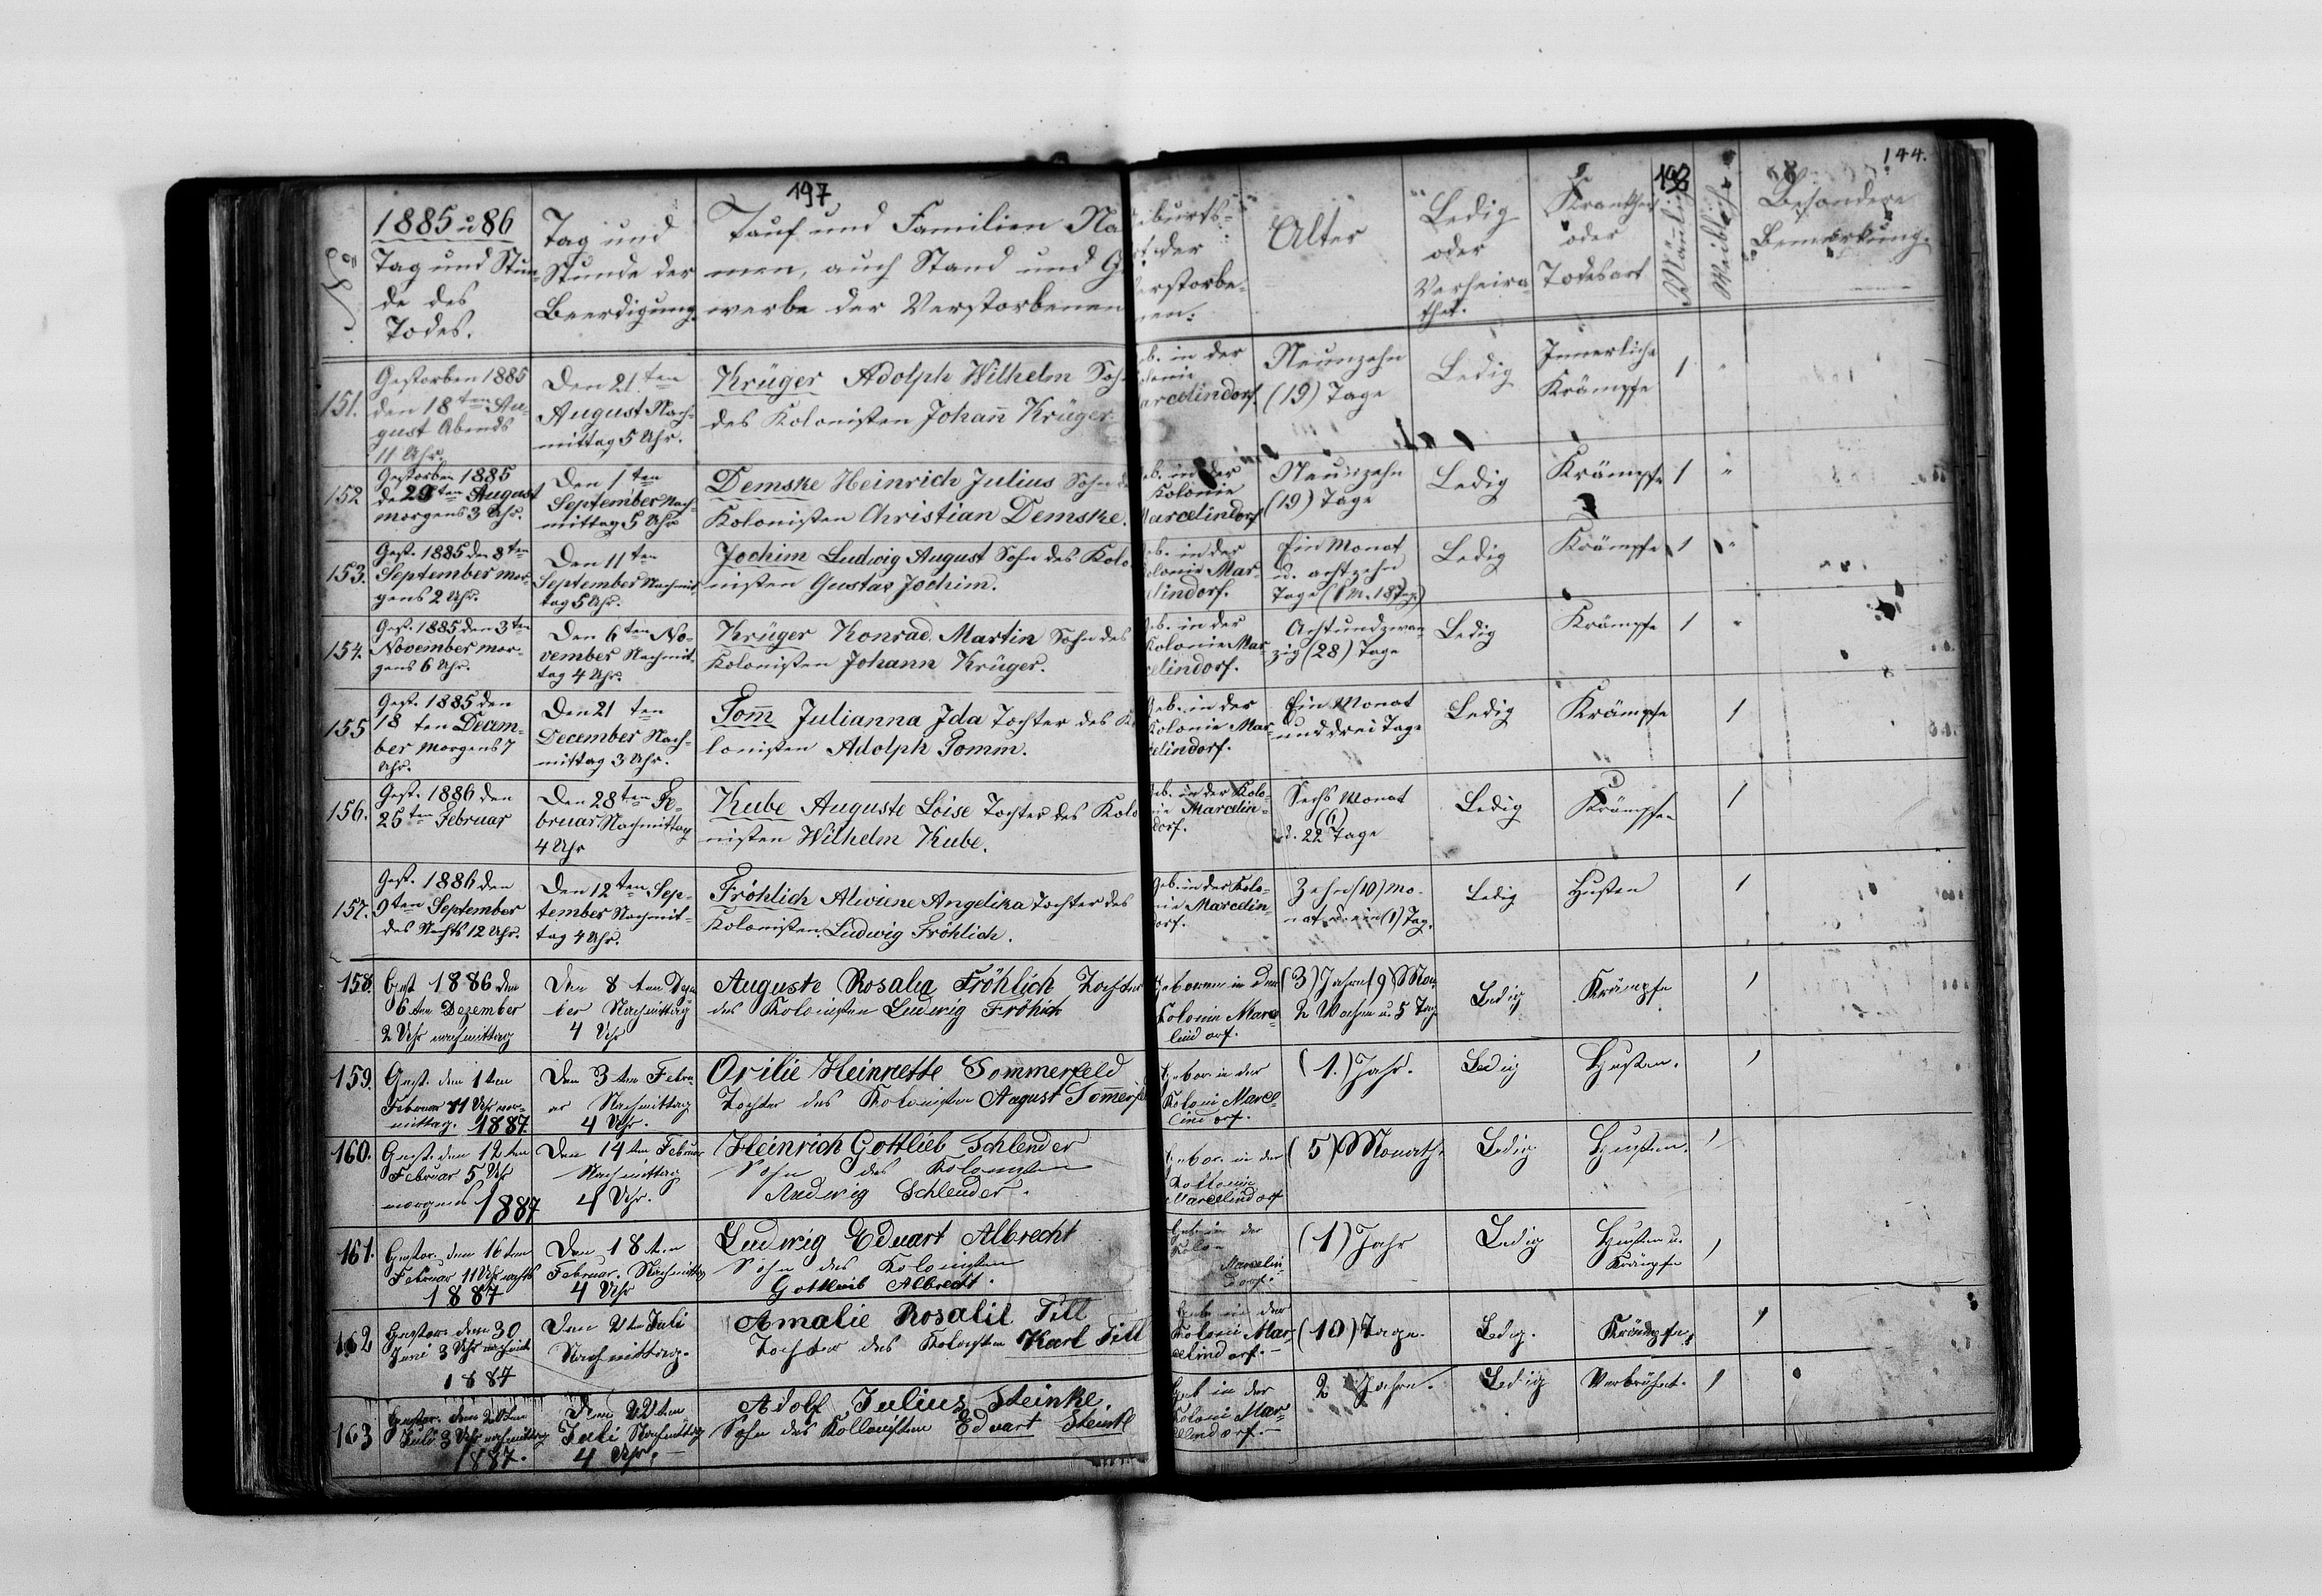 197
198
144.
No
1885 u 86
Tag und Stun-
de des
Todes.
Tag und
Stunde der
Beerdigung.
Tauf und Familien Na
men, auch Stand und G
werbe der Verstorbenen
burts-
rt der
erstorbe-
nen:
Alter
Ledig
oder
Verheira-
thet.
Krankheit
oder
Todesart
Mänlich
Weiblich
Besondere
Bemerkung.
151.
Gestorben 1885
den 18ten Au-
gust Abends
11 Uhr.
Den 21ten
August Nach-
mittag 5 Uhr.
Krüger Adolph Wilhelm Soh
des Kolonisten Johan̄ Krüger
eb. in der
lonie
arcelindorf.
Neunzehn
(19) Tage
Ledig
Innerliche
Krämpfe
1
"
152
Gestorben 1885
den 29ten August
morgens 3 Uhr.
Den 1ten
September Nach-
mittag 5 Uhr
Demske Heinrich Julius Sohn d
Kolonisten Christian Demske.
eb. in der
Kolonie
Marcelindorf
Neunzehn
(19) Tage
Ledig
Krämpfe
1
"
153.
Gest. 1885 den 8ten
September mor-
gens 2 Uhr.
Den 11ten
September Nachmit-
tag 5 Uhr.
Jochim Ludwig August Sohn des Kolo
nisten Gustav Jochim.
eb. in der
olonie Mar-
elindorf.
Ein Monat
u. achtzehn
Tage (1 M. 18 Tag.)
Ledig
Krämpfe
1
"
154.
Gest. 1885 den 3ten
November mor-
gens 6 Uhr.
Den 6ten No-
vember Nachmit-
tag 4 Uhr.
Krüger Konrad Martin Sohn des
Kolonisten Johann Krüger.
eb. in der
Kolonie Mar-
celindorf.
Achtundzwan-
zig (28) Tage
Ledig
Krämpfe
1
"
155
Gest. 1885 den
18 ten Decem-
ber Morgens 7
Uhr.
Den 21 ten
December Nach-
mittag 3 Uhr.
Tom̄ Julianna Ida Tochter des Ko
lonisten Adolph Tomm.
Geb. in der
Kolonie Mar-
celindorf.
Ein Monat
und drei Tage
Ledig
Krämpfe
1
156.
Gest. 1886 den
25ten Februar
Den 28ten Fe-
bruar Nachmittag
4 Uhr
Kube Auguste Loise Tochter des Kolo
nisten Wilhelm Kube.
Geb. in der Kolo-
nie Marcelin-
dorf.
Sechs Monat
(6)
u. 22 Tage
Ledig
Krämpfen
1
157.
Gest. 1886 den
9ten September
des Nachts 12 Uhr.
Den 12ten Sep-
tember Nachmit-
tag 4 Uhr.
Fröhlich Alwiene Angelika Tochter des
Kolonisten Ludwig Fröhlich.
Geb. in der Kolo-
nie Marcelin-
dorf.
Zehn (10) Mo-
nat u. ein (1) Tag.
Ledig
Husten
1
158.
Gest 1886 den
6ten Dezember
2 Uhr nachmittag
Den 8ten Dezem
ber Nachmittag
4 Uhr
Auguste Rosalia Fröhlich Tochter
des Kolonisten Ludwig Fröhich
Geboren in der
Kolonie Marce-
lindorf.
(3) Jahre (9) Mon.
2 Wochen u. 5 Tag
Ledig
Krämpfe
1
159.
Gest. den 1ten
Februar 11 Uhr vor-
mittag. 1887.
Den 3ten Febru-
ar Nachmittag
4 Uhr.
Orilie Heinriette Sommerfeld
Tochter des Kolonisten August Som̄erfel
Gebor. in der
Koloni Marce-
lindorf.
(1.) Jahr.
Ledig
Husten.
1
160.
Gest. den 12ten
Februar 5 Uhr
morgens 1887
Den 14ten Februar
Nachmittag
4 Uhr.
Heinrich Gottlieb Schlender
Sohn des Kolonisten
Ludwig Schlender.
Gebor. in der
Kolloni
Marcelindorf
(5) Monath.
Ledig
Husten.
1
161.
Gestor. den 16ten
Februar 11 Uhr nachts
1887
Den 18ten
Februar. Nachmittag
4 Uhr
Ludwig Eduart Albrecht
Sohn des Kolonisten
Gottleib Albrecht.
Geb in der
Kolon
Marcelin-
dorf.
(1) Jahr
Ledig
Husten u.
Krämpfe
1
162
Gestor. den 30
Juni 3 Uhr
1887
Den 2ten Juli
Nachmittag.
Amalie Rosalie Till
Tochter des Kolonisten Karl Till
Geb. in der
Koloni Mar-
celindorf.
(10) Tage.
Ledig.
Krämpfe.
1
163
Gestor. den 20ten
Juli 3 Uhr nachmittag
1887.
Den 22ten
Juli Nachmittag
4 Uhr.
Adolf Julius Steinke
Sohn des Kollonisten Eduart Steink
Geb in der
Koloni Mar-
celindorf.
2 Jahre.
Ledig
Verbrüht.
1